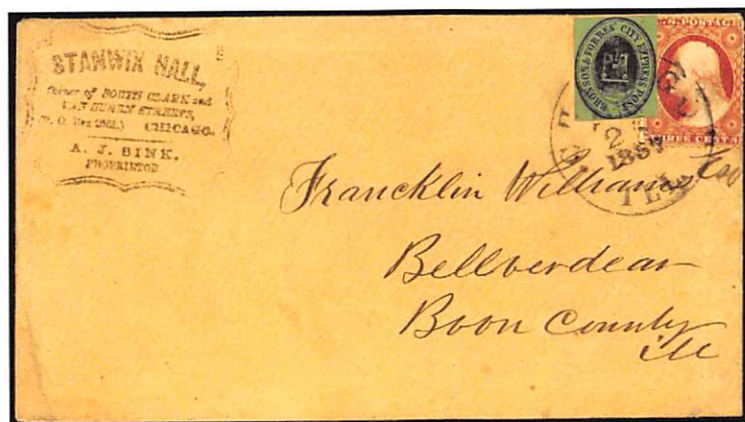 STANWIX HALL,
Corner of SOUTH CLARK and
VAN BUREN STREETS,
(P. O. Box 2621.) CHICAGO.
A. J. SINK,
PROPRIETOR
BRONSON & FORBES' CITY EXPRESS POST
U.S. POSTAGE
THREE CENTS
1857
ILL
Francklin Williams
Bellverdear
Boon County
Ill